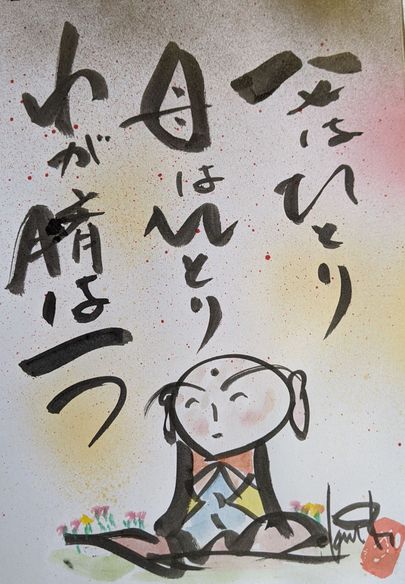 父はひとり
母はひとり
わが臍は一つ